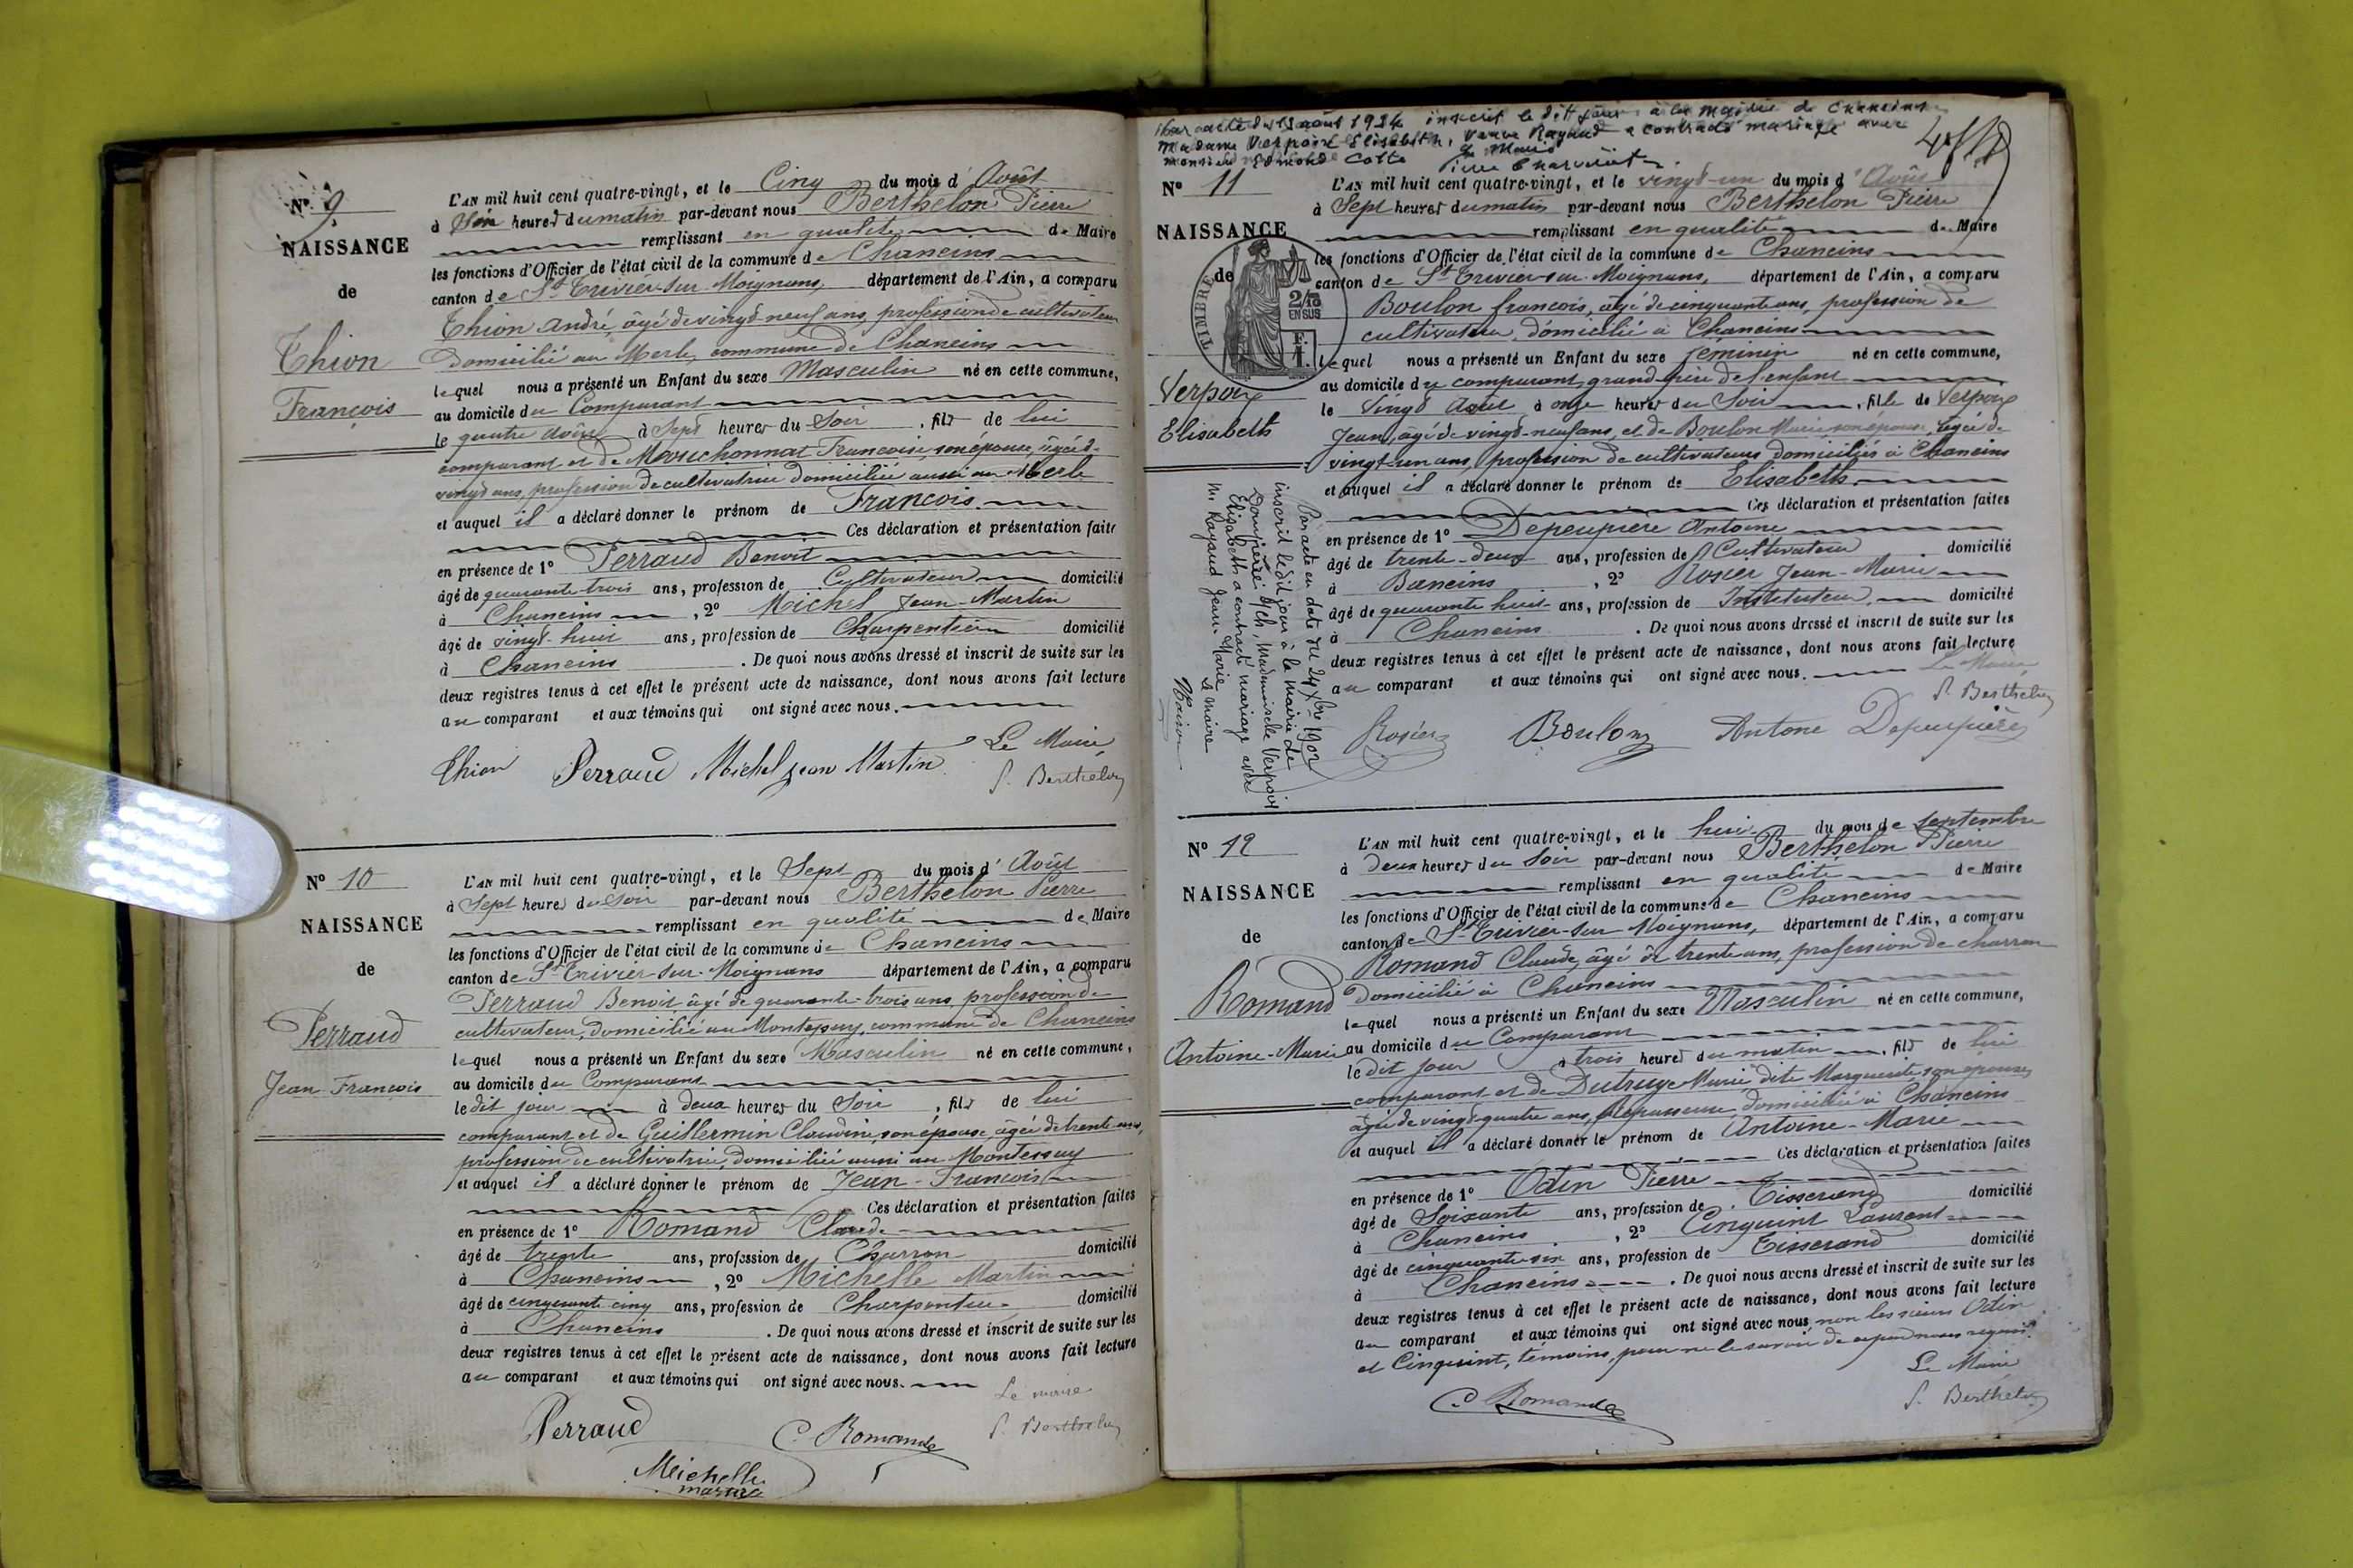 N° 9
NAISSANCE
de
Thion
François
L'AN mil huit cent quatre-vingt, et le Cinq du mois d'Août
à Six heures du matin par-devant nous Berthelon Pierre
remplissant en qualité de Maire
les fonctions d'Officier de l'état civil de la commune de Chaneins
canton de St Trivier-sur-Moignans, département de l'Ain, a comparu
Thion André, âgé de vingt-neuf ans, profession de cultivateur
domicilié au Merle, commune de Chaneins
lequel nous a présenté un Enfant du sexe Masculin né en cette commune,
au domicile du Comparant
le quatre août à Sept heures du Soir, fils de lui
comparant et de Mouchonnat Françoise son épouse, âgée de
vingt ans, profession de cultivatrice domiciliée aussi au Merle
et auquel il a déclaré donner le prénom de François
Ces déclaration et présentation faites
en présence de 1° Perraud Benoit
âgé de quarante trois ans, profession de Cultivateur domicilié
à Chaneins, 2° Michel Jean-Martin
âgé de vingt-huit ans, profession de Charpentier domicilié
à Chaneins. De quoi nous avons dressé et inscrit de suite sur les
deux registres tenus à cet effet le présent acte de naissance, dont nous avons fait lecture
au comparant et aux témoins qui ont signé avec nous.
Thion Perraud Michel jean Martin Le Maire,
P. Berthelon
N° 10
NAISSANCE
de
Perraud
Jean François
L'AN mil huit cent quatre-vingt, et le Sept du mois d'Août
à Sept heures du Soir par-devant nous Berthelon Pierre
remplissant en qualité de Maire
les fonctions d'Officier de l'état civil de la commune de Chaneins
canton de St Trivier-sur-Moignans département de l'Ain, a comparu
Perraud Benoit âgé de quarante-trois ans, profession de
cultivateur, domicilié au Montessuy, commune de Chaneins
lequel nous a présenté un Enfant du sexe Masculin né en cette commune,
au domicile du Comparant
le dit jour à deux heures du Soir, fils de lui
comparant et de Guillermin Claudine, son épouse, âgée de trente ans,
profession de cultivatrice, domiciliée aussi au Montessuy
et auquel il a déclaré donner le prénom de Jean-François
Ces déclaration et présentation faites
en présence de 1° Romand Claude
âgé de trente ans, profession de Charron domicilié
à Chaneins, 2° Michelle Martin
âgé de cinquante cinq ans, profession de Charpentier domicilié
à Chaneins. De quoi nous avons dressé et inscrit de suite sur les
deux registres tenus à cet effet le présent acte de naissance, dont nous avons fait lecture
au comparant et aux témoins qui ont signé avec nous.
Le maire
Perraud C. Romand P. Berthelon
Michelle
martin
par acte du 13 août 1924 inscrit le dit jour à la Mairie de Chaneins
Madame Verpoix Elisabeth, veuve Rayaud a contracté mariage avec
monsieur Edmond Cotte Le Maire
N° 11
NAISSANCE
de
TIMBRE
2/10
EN SUS
F.
1.
Verpoix
Elisabeth
L'AN mil huit cent quatre-vingt, et le vingt-un du mois d'Août
à Sept heures du matin par-devant nous Berthelon Pierre
remplissant en qualité de Maire
les fonctions d'Officier de l'état civil de la commune de Chaneins
canton de St Trivier-sur-Moignans, département de l'Ain, a comparu
Boulon françois, âgé de cinquante ans, profession de
cultivateur, domicilié à Chaneins
lequel nous a présenté un Enfant du sexe féminin né en cette commune,
au domicile du comparant, grand-père de l'enfant
le Vingt Août à onze heures du Soir, fille de Verpoix
Jean, âgé de vingt-neuf ans, et de Boulon Marie son épouse, âgée de
vingt-un ans, profession de cultivateurs domiciliés à Chaneins
et auquel il a déclaré donner le prénom de Elisabeth
Ces déclaration et présentation faites
en présence de 1° Depeupière Antoine
âgé de trente-deux ans, profession de Cultivateur domicilié
à Baneins, 2° Rosier Jean-Marie
âgé de quarante huit ans, profession de Instituteur, domicilié
à Chaneins. De quoi nous avons dressé et inscrit de suite sur les
deux registres tenus à cet effet le présent acte de naissance, dont nous avons fait lecture
au comparant et aux témoins qui ont signé avec nous. Le Maire
P. Berthelon
Rosier Boulon Antone Depeupière
Par acte en date du 24 Xbre 1902
inscrit le dit jour à la mairie de
Dompierre s/ch, Mademoiselle Verpoix
Elisabeth a contracté mariage avec
Mr Rayaud Jean-Marie
Le Maire
N° 12
NAISSANCE
de
Romand
Antoine-Marie
L'AN mil huit cent quatre-vingt, et le huit du mois de septembre
à deux heures du Soir par-devant nous Berthelon Pierre
remplissant en qualité de Maire
les fonctions d'Officier de l'état civil de la commune de Chaneins
canton de St Trivier-sur-Moignans, département de l'Ain, a comparu
Romand Claude, âgé de trente ans, profession de charron
domicilié à Chaneins
lequel nous a présenté un Enfant du sexe Masculin né en cette commune,
au domicile du Comparant
le dit jour à trois heures du matin, fils de lui
comparant et de Dutruge Marie dite Marguerite son épouse,
âgée de vingt-quatre ans, Repasseuse domiciliée à Chaneins
et auquel il a déclaré donner le prénom de Antoine-Marie
Ces déclaration et présentation faites
en présence de 1° Odin Pierre
âgé de Soixante ans, profession de Tisserand domicilié
à Chaneins, 2° Cinquint Laurent
âgé de cinquante-six ans, profession de Tisserand domicilié
à Chaneins. De quoi nous avons dressé et inscrit de suite sur les
deux registres tenus à cet effet le présent acte de naissance, dont nous avons fait lecture
au comparant et aux témoins qui ont signé avec nous, non les sieurs Odin
et Cinquint, témoins, pour ne le savoir de ce par nous requis.
Le Maire
C. Romand P. Berthelon